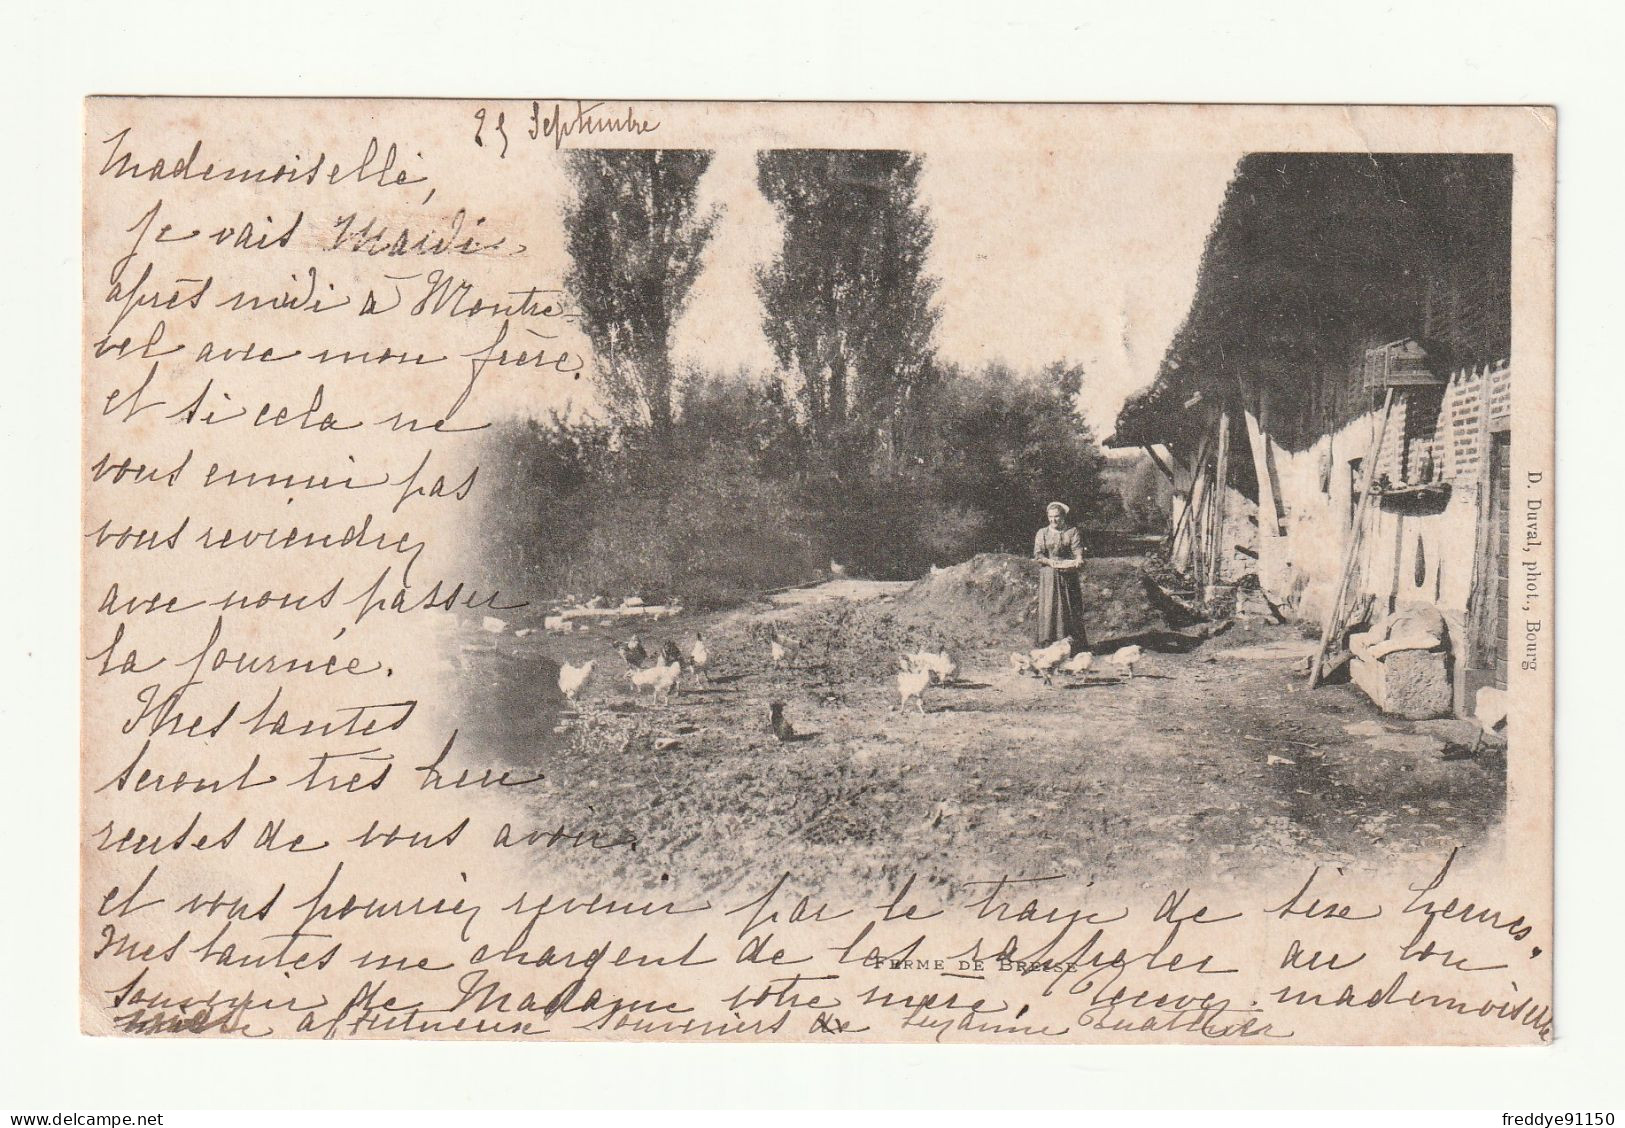 25 Septembre
Mademoiselle,
Je vais Mardi
après midi à Montre-
vel avec mon frère.
et si cela ne
vous ennui pas
vous reviendrez
avec nous passer
la journée.
Mes tantes
seront très heu
reuses de vous avoir.
et vous pourriez revenir par le train de six heures.
Mes tantes me chargent de les rappeler au bon
souvenir de Madame votre mère, recevez mademoiselle
affectueux souvenirs de Suzanne
FERME DE BRESSE
D. Duval, phot., Bourg
freddye91150